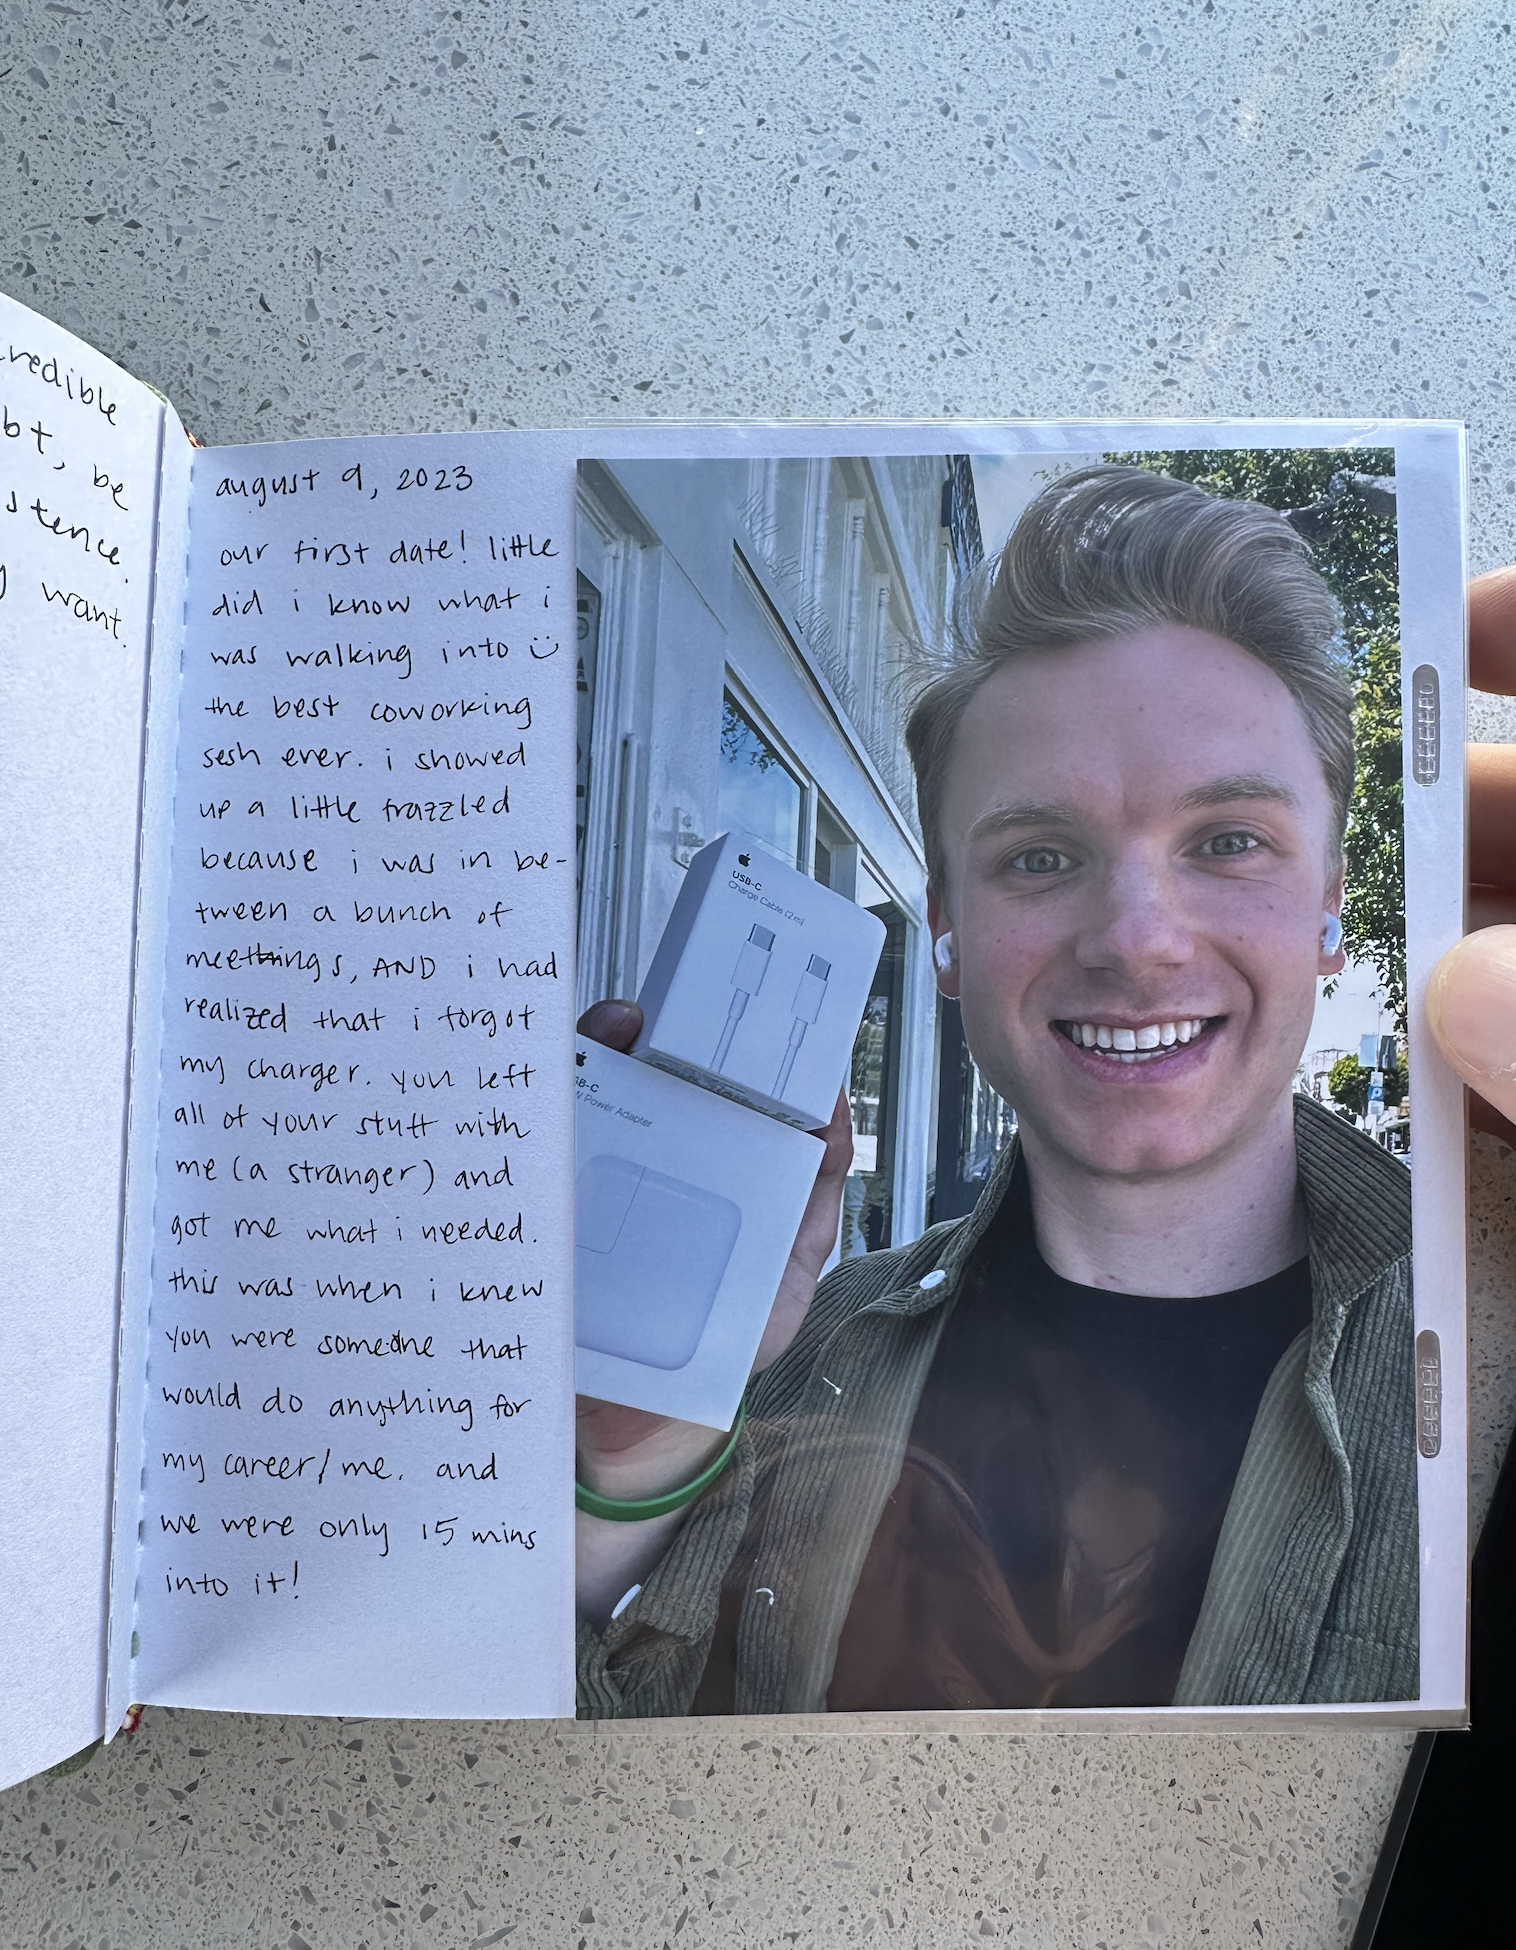 redible
bt, be
stence.
want
august 9, 2023
our first date! little
did i know what i
was walking into
the best coworking
sesh ever. i showed
up a little frazzled
because i was in be-
tween a bunch of
meetings, AND i had
realized that i forgot
my charger. you left
all of your stuff with
me (a stranger) and
got me what i needed.
this was when i knew
you were someone that
would do anything for
my career/me. and
we were only 15 mins
into it!
USB-C
Charge Cable (2m)
SB-C
Power Adapter